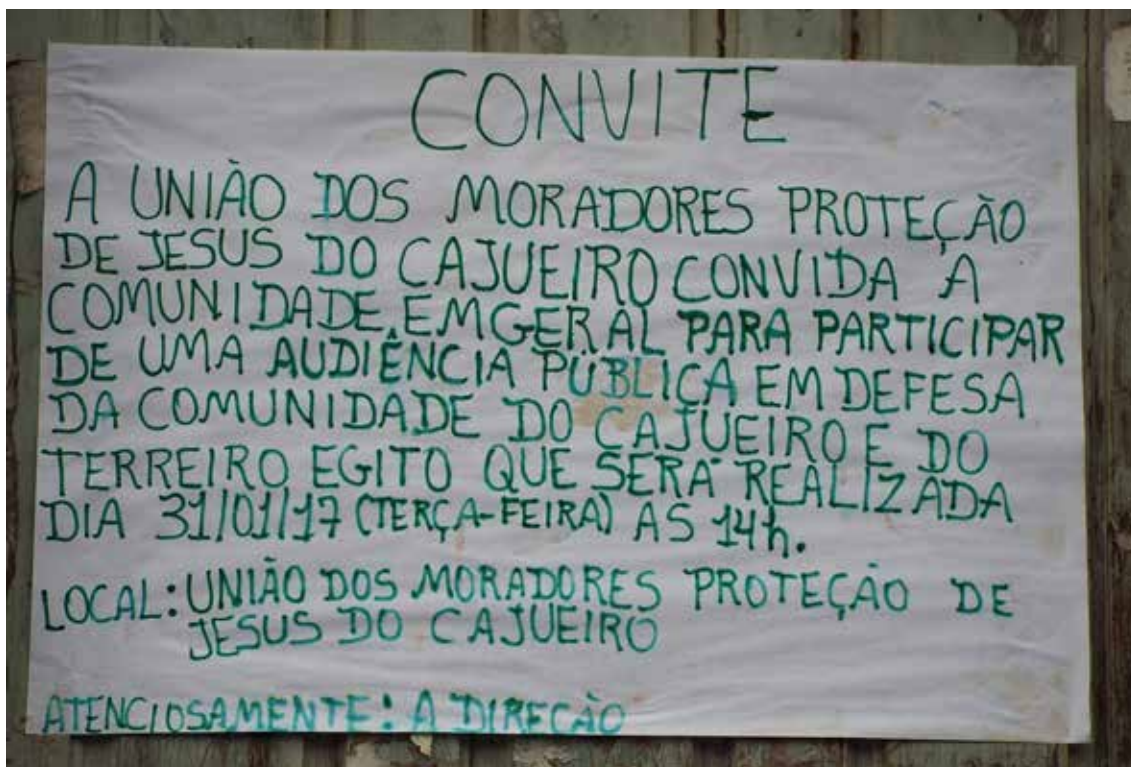 CONVITE
A UNIÃO DOS MORADORES PROTEÇÃO
DE JESUS DO CAJUEIRO CONVIDA A
COMUNIDADE EM GERAL PARA PARTICIPAR
DE UMA AUDIÊNCIA PÚBLICA EM DEFESA
DA COMUNIDADE DO CAJUEIRO E DO
TERREIRO EGITO QUE SERÁ REALIZADA
DIA 31/01/17 (TERÇA-FEIRA) AS 14h.
LOCAL: UNIÃO DOS MORADORES PROTEÇÃO DE
JESUS DO CAJUEIRO
ATENCIOSAMENTE: A DIREÇÃO